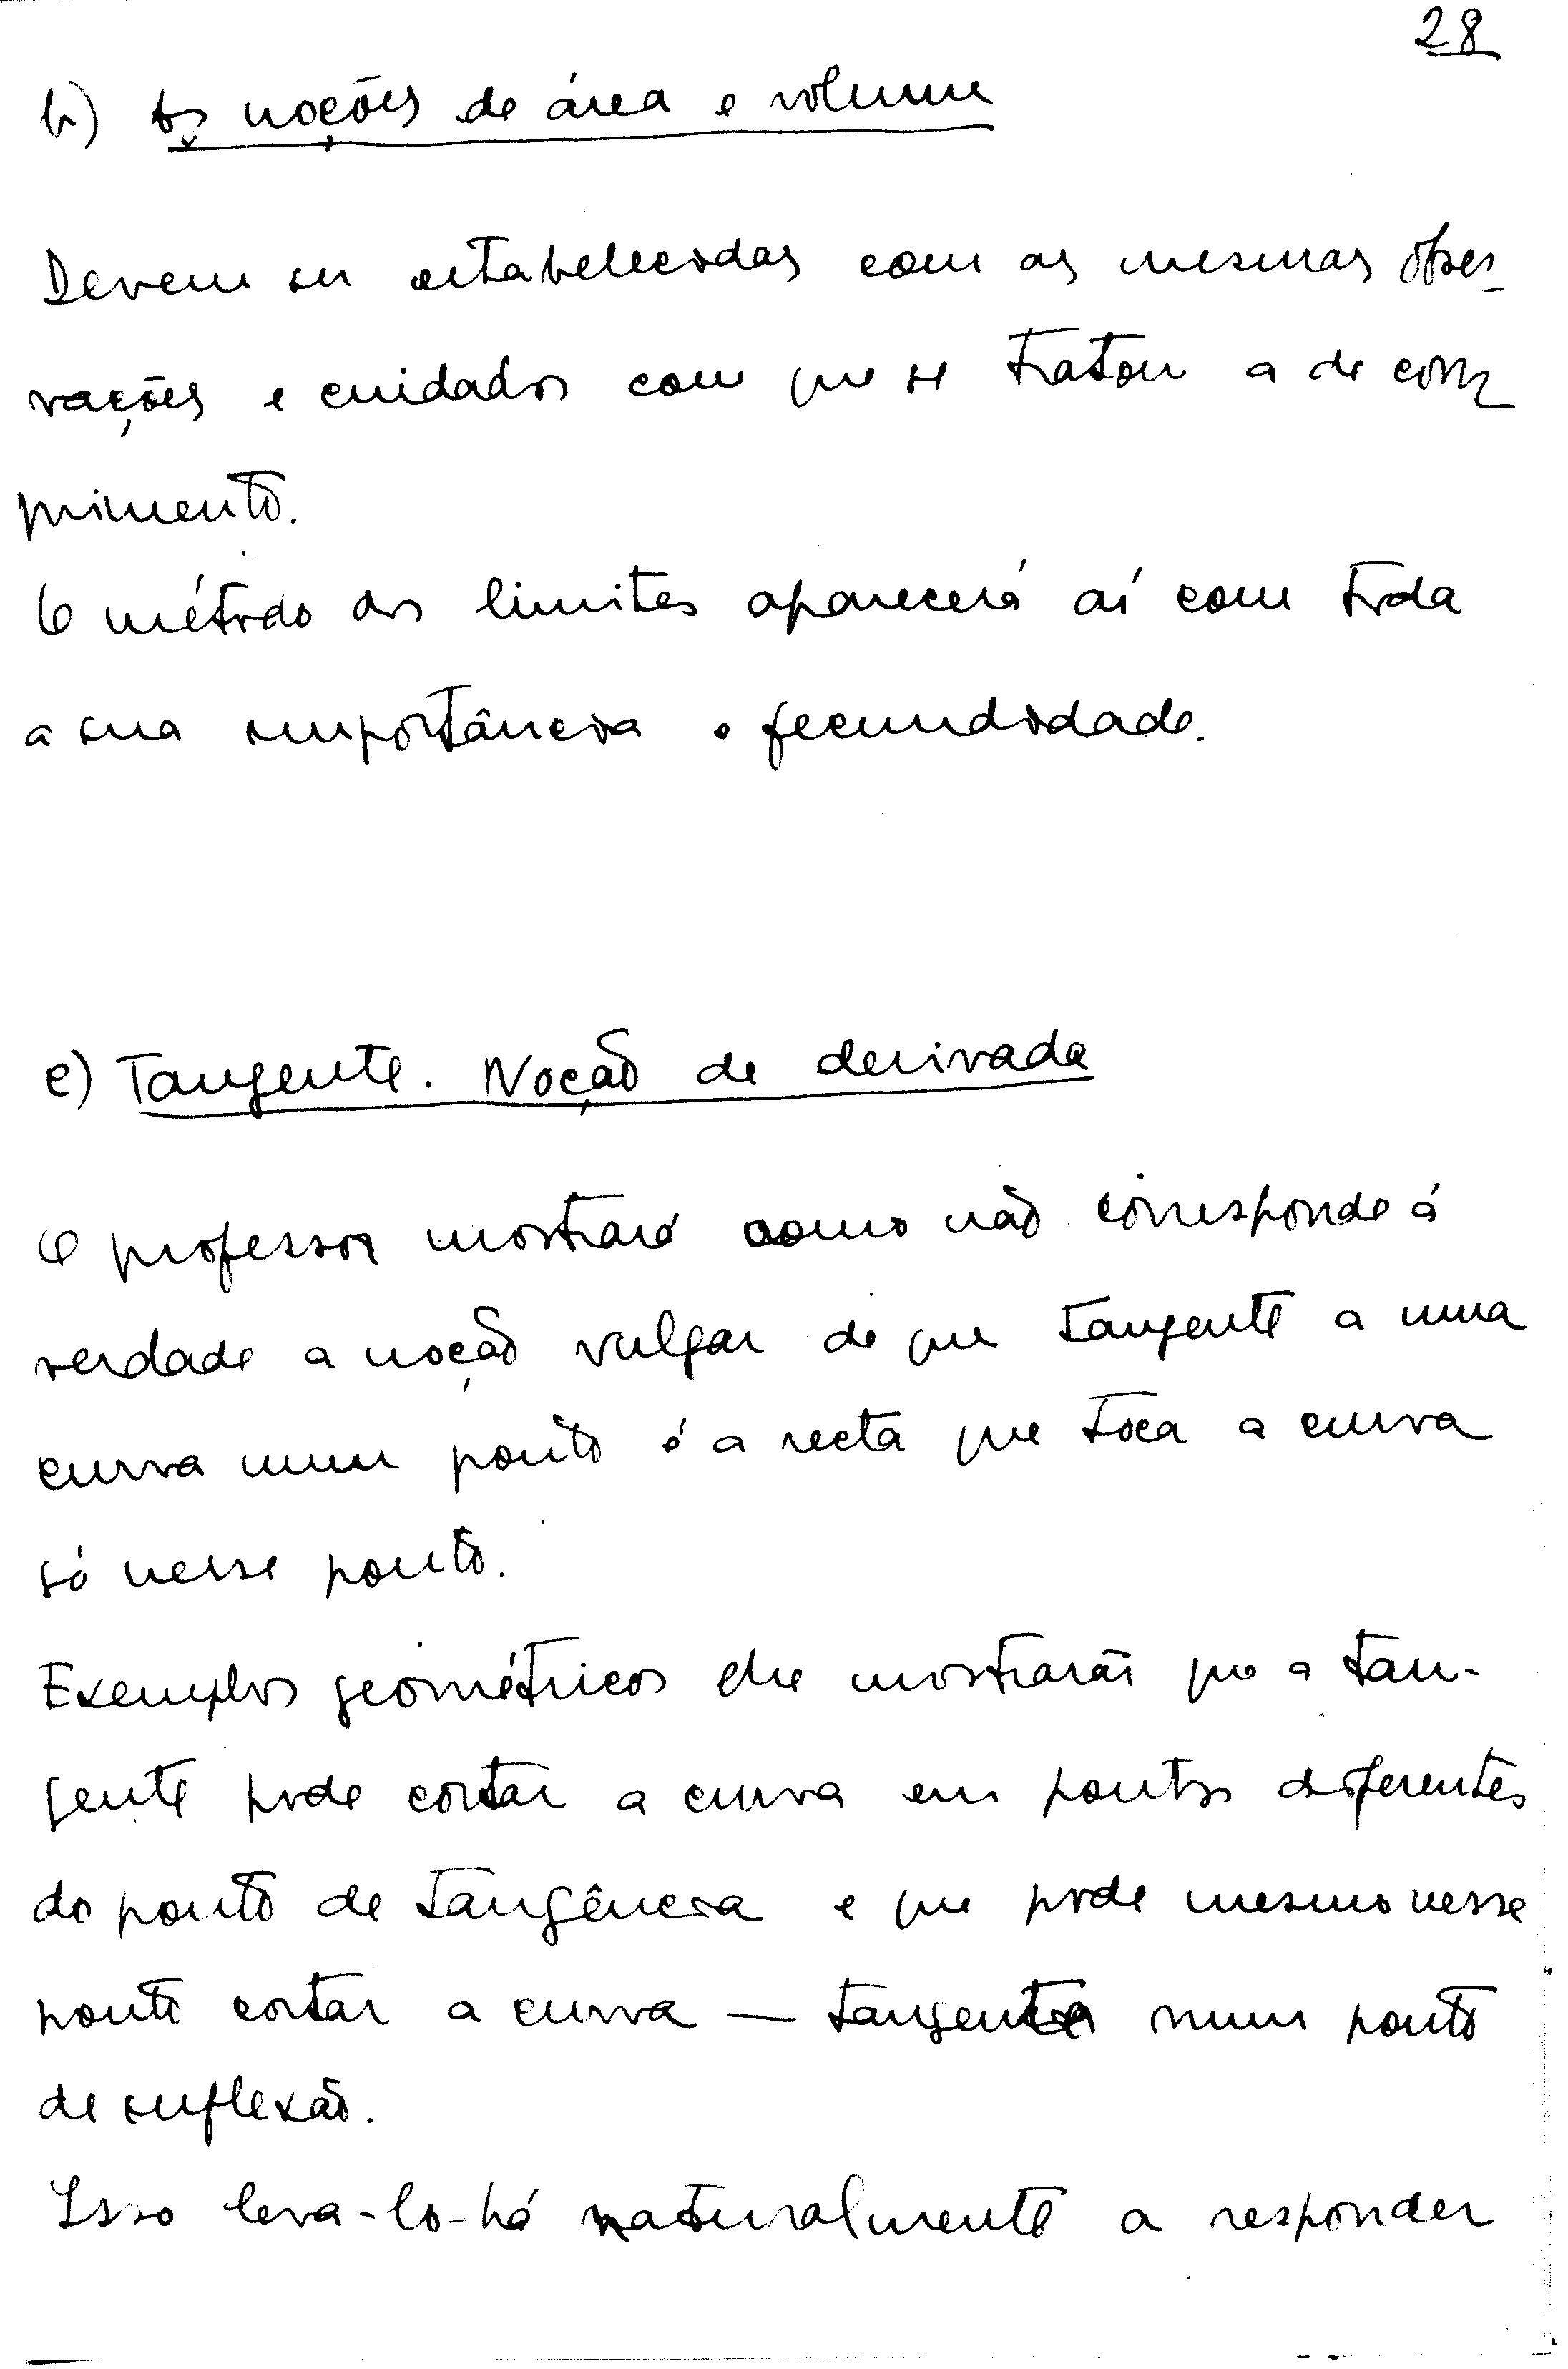 28
b) As noções de área e volume
Devem ser estabelecidas com as mesmas obser-
vações e cuidados com que se tratou a de com-
primento.
O método dos limites aparecerá aí com toda
a sua importância e fecundidade.
c) Tangente. Noção de derivada
O professor mostrará como não corresponde á
verdade a noção vulgar de que tangente a uma
curva num ponto é a recta que toca a curva
só nesse ponto.
Exemplos geométricos lhe mostrarão que a tan-
gente pode cortar a curva em pontos diferentes
do ponto de tangência e que pode mesmo nesse
ponto cortar a curva — tangente num ponto
de inflexão.
Isso leva-lo-há naturalmente a responder